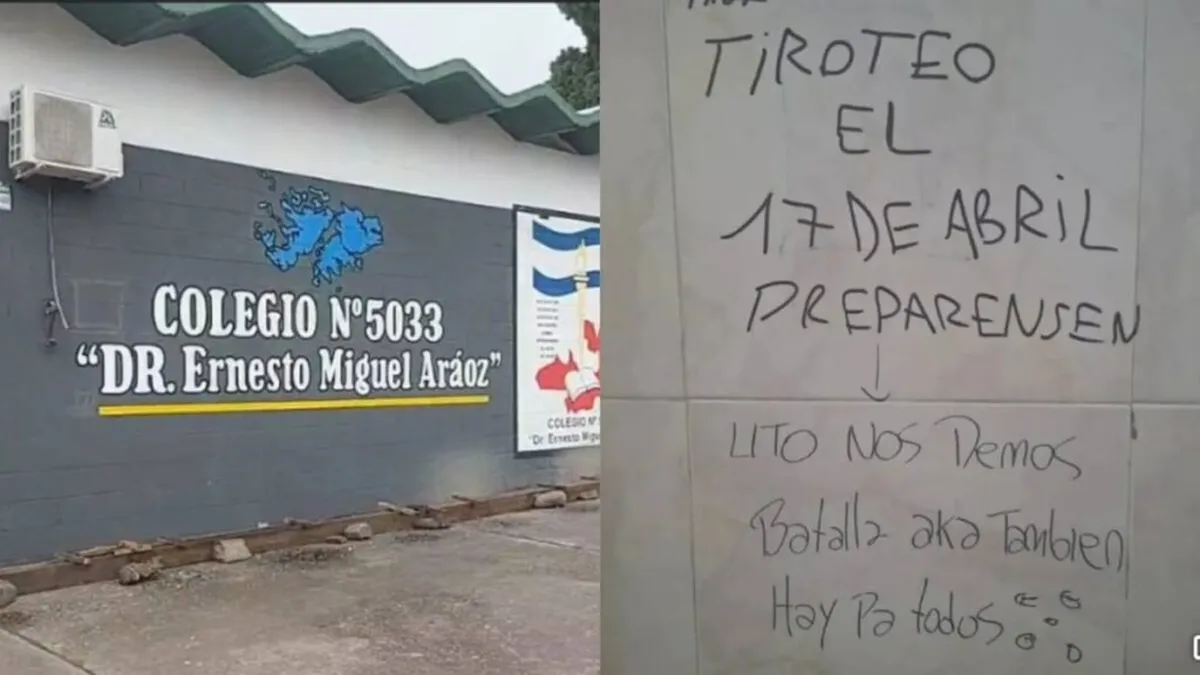 COLEGIO Nº 5033
"DR. Ernesto Miguel Aráoz"
COLEGIO Nº
"Dr. Ernesto
TIROTEO
EL
17 DE ABRIL
PREPARENSEN
LITO NOS Demos
Batalla aka Tambien
Hay Pa todos